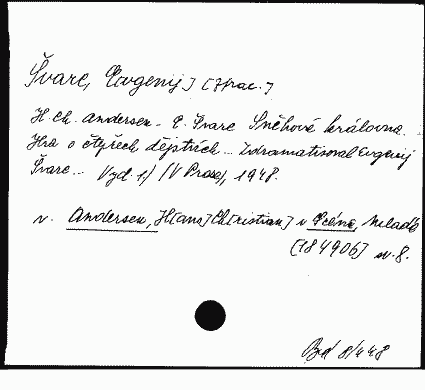 Švarc, Evgenij] [Zprac.]
H. Ch. Andersen - E. Švarc Sněhová královna.
Hra o čtyřech dějstvích... Zdramatisoval Evgenij
Švarc... Vyd. 1) (V Praze), 1948.
v. Andersen, H[ans] Ch[ristian] v Scéna, mladé
[184906] sv. 8.
8/448